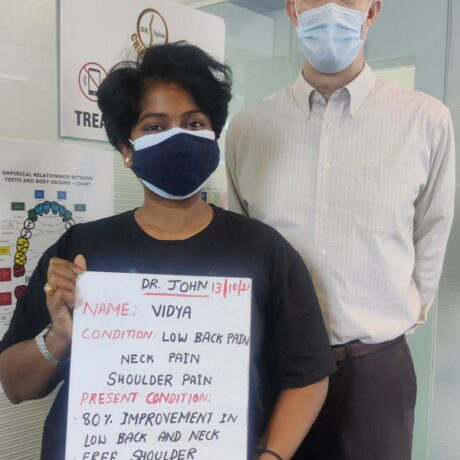 DR. Spine
TREA
EMPIRICAL RELATIONSHIP BETWEEN
TEETH AND BODY ORGANS – CHART
DR. JOHN 13/10/21
NAME: VIDYA
CONDITION: LOW BACK PAIN
NECK PAIN
SHOULDER PAIN
PRESENT CONDITION:
· 80% IMPROVEMENT IN
LOW BACK AND NECK
· FREE SHOULDER